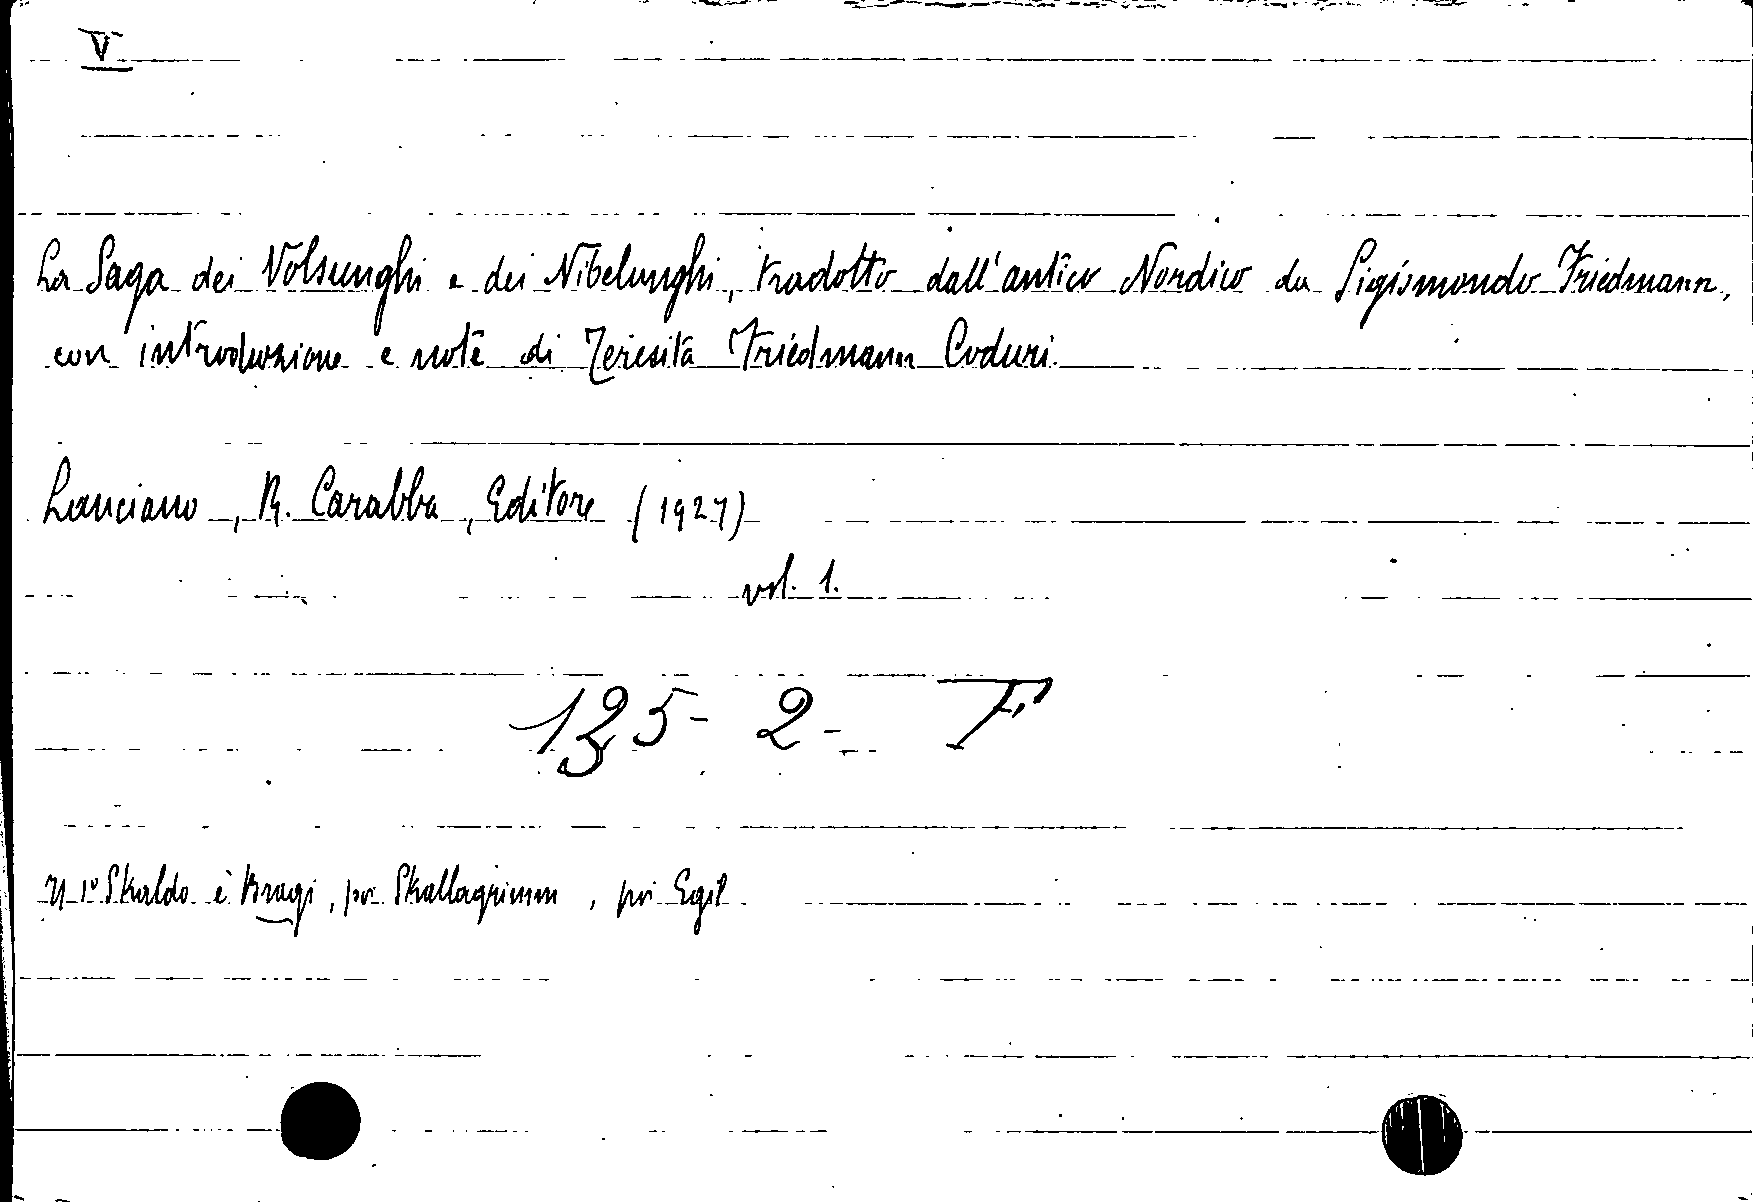 V
La Saga dei Volsunghi e dei Nibelunghi, tradotto dall'antico Nordico da Sigismondo Friedmann,
con introduzione e note di Teresita Friedmann Coduri.
Lanciano, R. Carabba, Editore (1927)
vol. 1.
135- 2- F
Il 1º Skaldo è Bragi, poi Skallagrimm, poi Egil